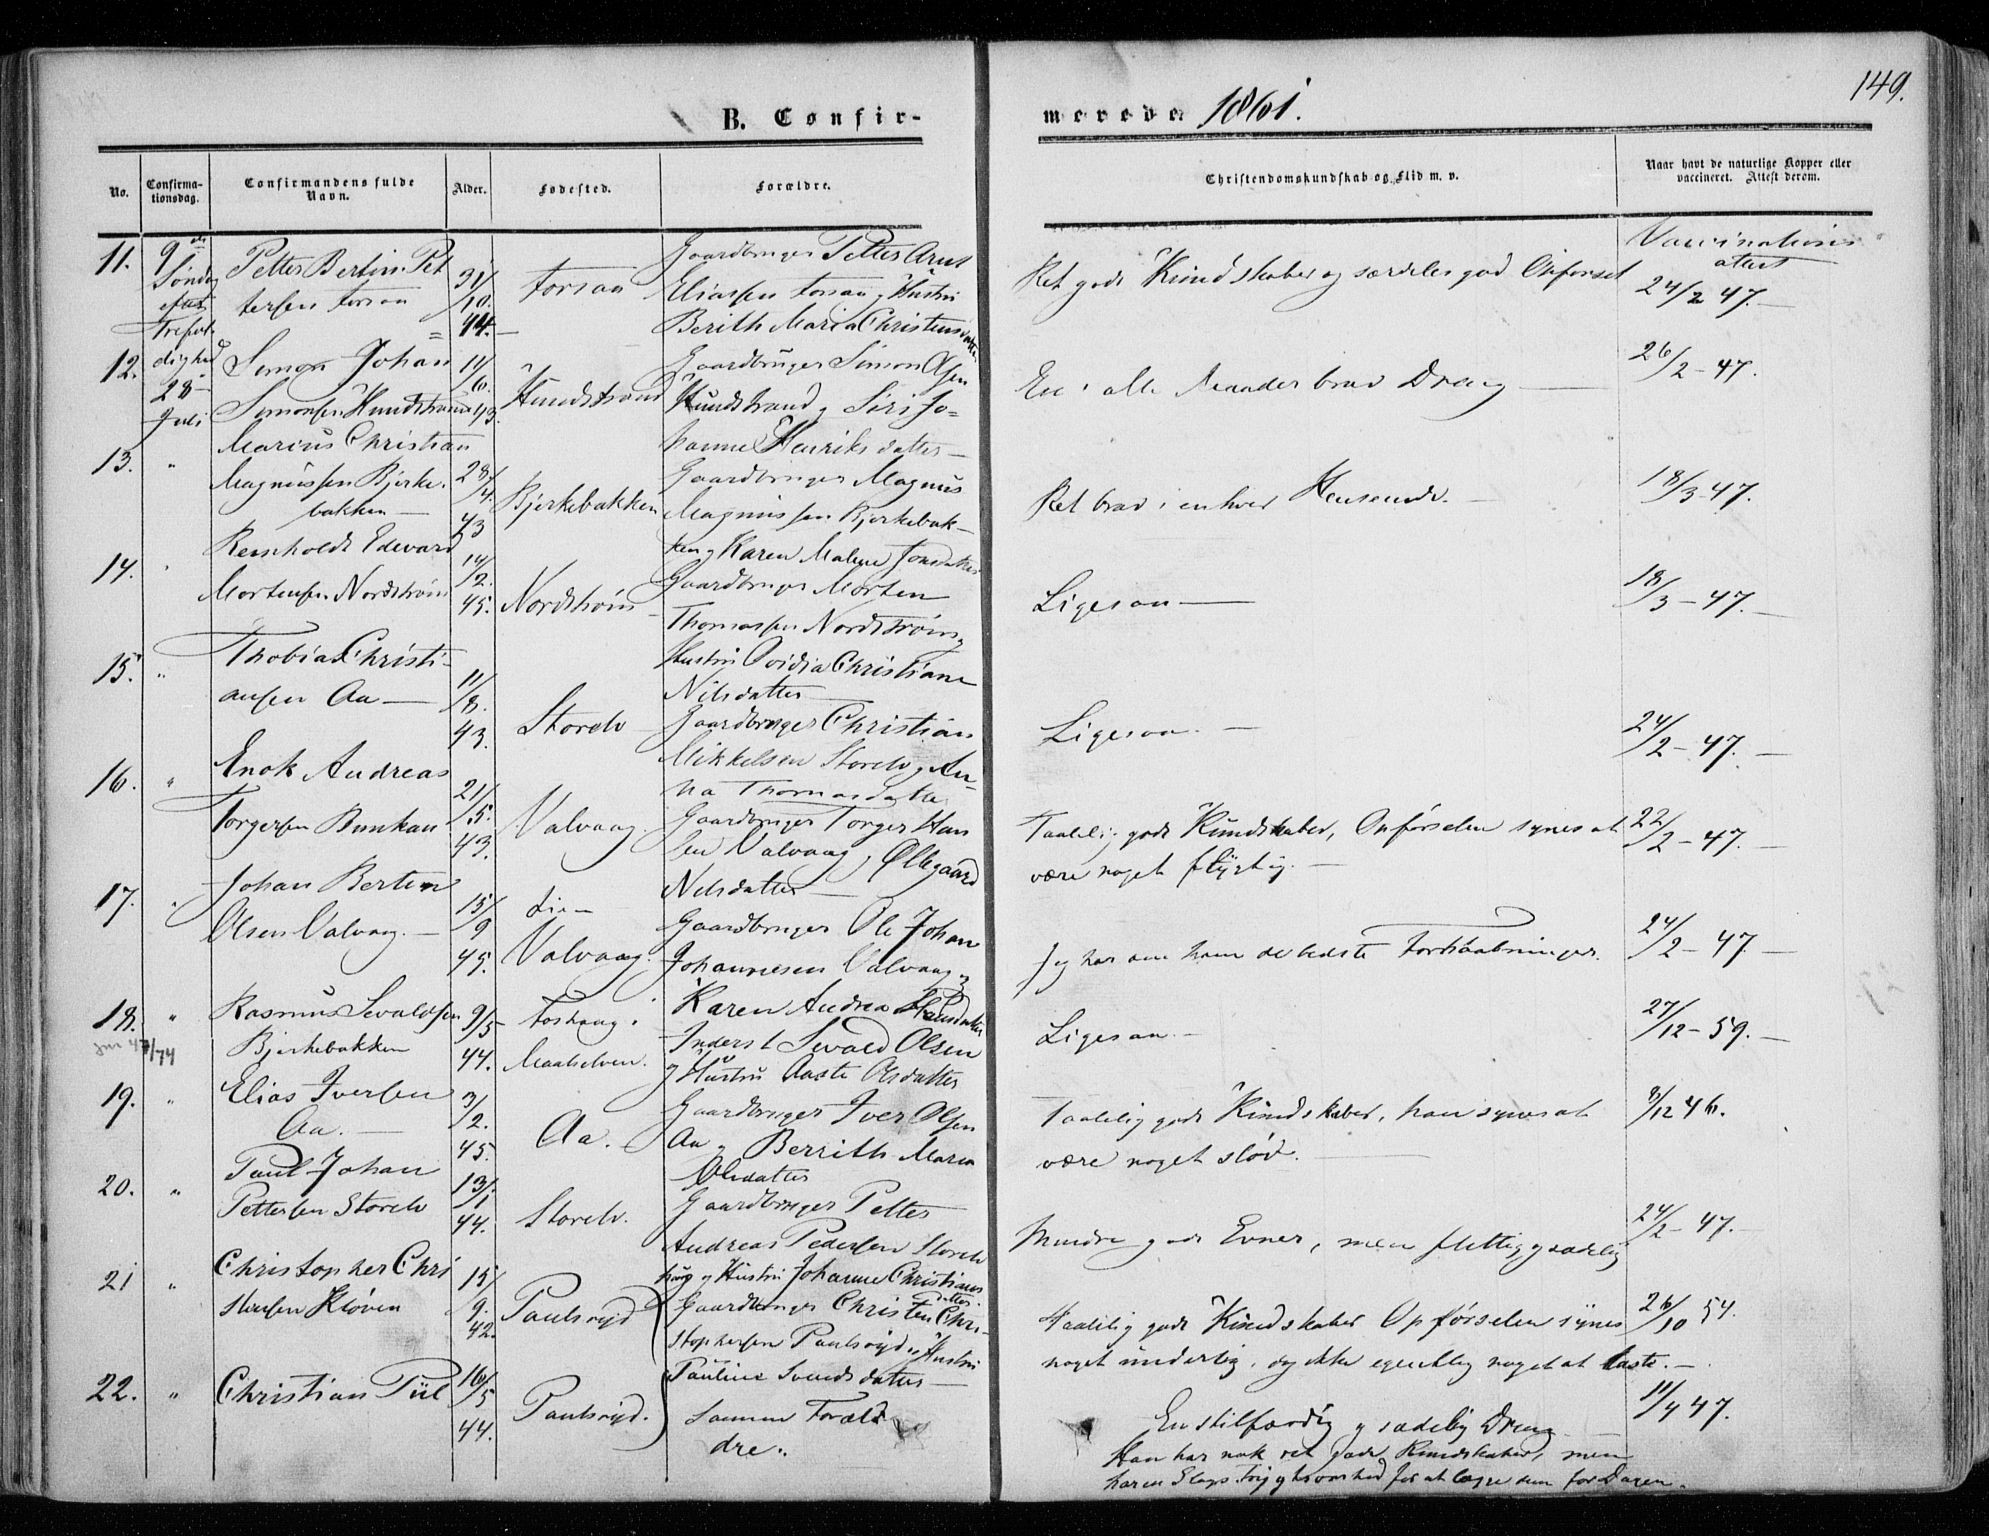 149.
B. Confir-
merede 1861.
No.
Confirma-
tionsdag.
Confirmandens fulde
Navn.
Alder.
Fødested.
Forældre.
Christendomskundskab og Flid m. v.
Naar havt de naturlige Kopper eller
vaccineret. Attest derom.
11.
9de
Søndag
Trefol-
dighed
28
Juli
Petter Bertin Pet
tersen
31/
10.
44.
Gaardbruger Petter
Eliassen
Hustru
Berith Maria Christensdatter
Ret gode Kundskaber og særdeles god Opførsel
Vaccinations
attest
24/2 47.
12.
Simon Johan
Simonsen Hundstrand
11/
6.
43.
Hundstrand
Gaardbruger Simon Olsen
Hundstrand og Siri Jo=
hanne Henriksdatter
En i alle Maader brav Dreng
26/2-47.
13.
"
Marius Christian
Magnussen Bjerke-
bakken
28/
4.
43
Bjerkebakken
Gaardbruger Magnus
Magnussen Bjerkebak-
ken og Karen Malene Jonsdatter
Ret brav i enhver Henseende.
18/3-47.
14.
Reinholdt Edevard
Mortensen Nordstrøm
14/
2.
45.
Nordstrøm
Gaardbruger Morten
Thomassen Nordstrøm og
Hustru Ovidia Christiane
Nilsdatter
Ligesaa
18/3-47.
15.
"
Thobias Christi-
ansen Aa
11/
8.
43.
Storelv
Gaardbruger Christian
Mikkelsen Storelv og An-
na Thomasdatter
Ligesaa.
24/2-47.
16.
"
Enok Andreas
Torgersen Bunkan
21/
5.
43.
Valvaag.
Gaardbruger Torger Han
sen Valvaag, Ollegaard
Nilsdatter
Taalelig gode Kundskaber, Opførselen synes at
være noget flygtig.
22/2-47.
17.
Johan Bertin
Olsen Valvaag.
15/
9
45.
Valvaag.
Gaardbruger Ole Johan
Johannesen Valvaag og
Karen Andrea Hansdatter
Jeg har om ham de bedste Forhaabninger.
24/2-47.
18.
"
Rasmus Sevaldsen
Bjerkebakken
9/5
44.
Maalselven.
Inderst Sevald Olsen
og Hustru Aaste Olsdatter
Ligesaa.
27/12-59.
19.
"
Elias Iversen
Aa.
3/
2.
45.
Aa.
Gaardbruger Iver Olsen
Aa og Berrith Maria
Olsdatter
Taalelig gode Kundskaber, han synes at
være noget sløv.
8/12 46.
20.
"
Paul Johan
Pettersen Storelv
13/
1
44.
Storelv.
Gaardbruger Petter
Andreas Pedersen Storelv
og Hustru Johanne Christians
datter.
Mindre gode Evner, men flittig og sædelig
24/2-47.
21
"
Christopher Chri
stensen Kløven
15/
9.
42.
Paulsryd
Gaardbruger Christen Chri-
stophersen Paulsryd og Hustru
Pauline Svendsdatter
Taalelig gode Kundskaber Opførselen synes
noget underlig, dog ikke egentlig noget at laste.
26/10 54.
22.
"
Christian Piil
16/
5
44.
Paulsryd.
Samme Foræl
dre.
En stilfærdig og sædelig Dreng
Han har nok ret gode Kundskaber, men
for at lægge dem for Dagen.
11/4 47.